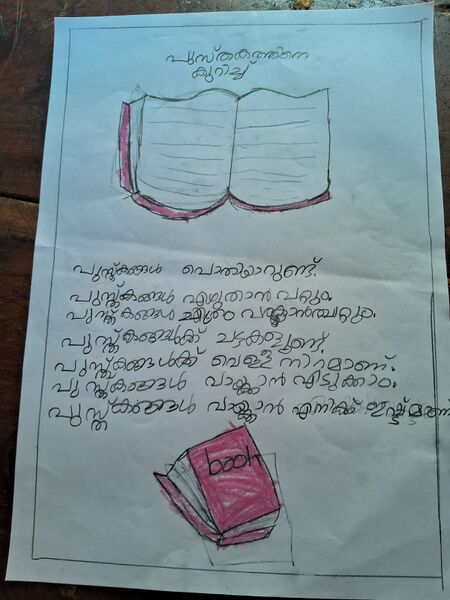 പുസ്തകത്തിനെ
കുറിച്ച്
പുസ്തകങ്ങൾ പൊതിയാറുണ്ട്.
പുസ്തകങ്ങൾ എഴുതാൻ പറ്റും.
പുസ്തകങ്ങൾ ചിത്രം വരക്കാൻപറ്റും.
പുസ്തകങ്ങൾക്ക് ചട്ടകളുണ്ട്.
പുസ്തകങ്ങൾക്ക് വെള്ള നിറമാണ്.
പുസ്തകങ്ങൾ വായ്ക്കാൻ എടുക്കാം.
പുസ്തകങ്ങൾ വായ്ക്കാൻ എനിക്ക് ഇഷ്ട്ടമാണ്
book